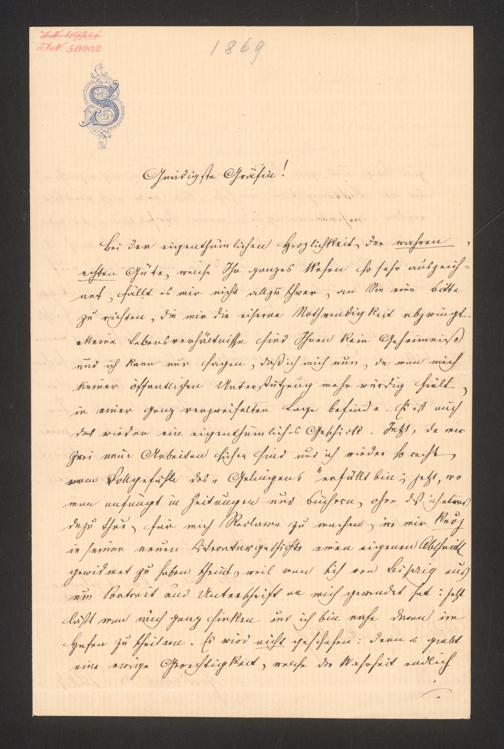 I.N. 50002
1869
S
Gnädigste Gräfin!
Bei der eigenthümlichen Herzlichkeit, der wahren,
echten Güte, welche Ihr ganzes Wesen so sehr auszeich-
net, fällt es mir nicht allzu schwer, an Sie eine Bitte
zu richten, die mir die eiserne Nothwendigkeit abzwingt.
Meine Lebensverhältnisse sind Ihnen kein Geheimniß
und ich kann nur sagen, daß ich mich nun, da man mich
keiner öffentlichen Unterstützung mehr würdig hielt,
in einer ganz verzweifelten Lage befinde. Es ist auch
das wieder ein eigenthümliches Geschick. Jetzt, da
zwei neue Arbeiten sind und ich wieder so recht
vom Vollgefühle des „Gelingens" erfüllt bin; jetzt, wo
man anfängt in Zeitungen und Büchern, ohne daß ich etwas
dazu thue, für mich Reclame zu machen, wo mir Kurz
in seiner neuen Literaturgeschichte einen eigenen Abschnitt
gewidmet zu haben scheint, weil man sich von Leipzig aus
um Portrait und Unterschrift an mich gewendet hat: jetzt
läßt man mich ganz sinken und ich bin nahe daran im
Hafen zu scheitern. Es wird nicht geschehen: denn es giebt
eine ewige Gerechtigkeit, welche die Wahrheit endlich